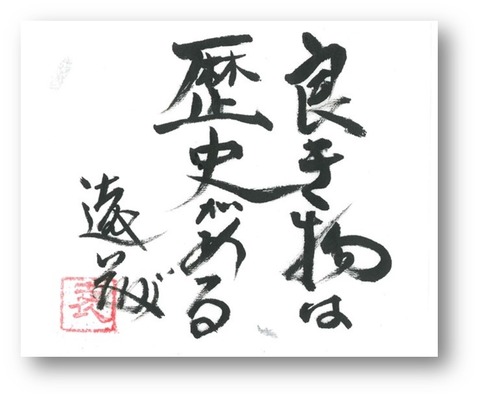 良き物は
歴史がある